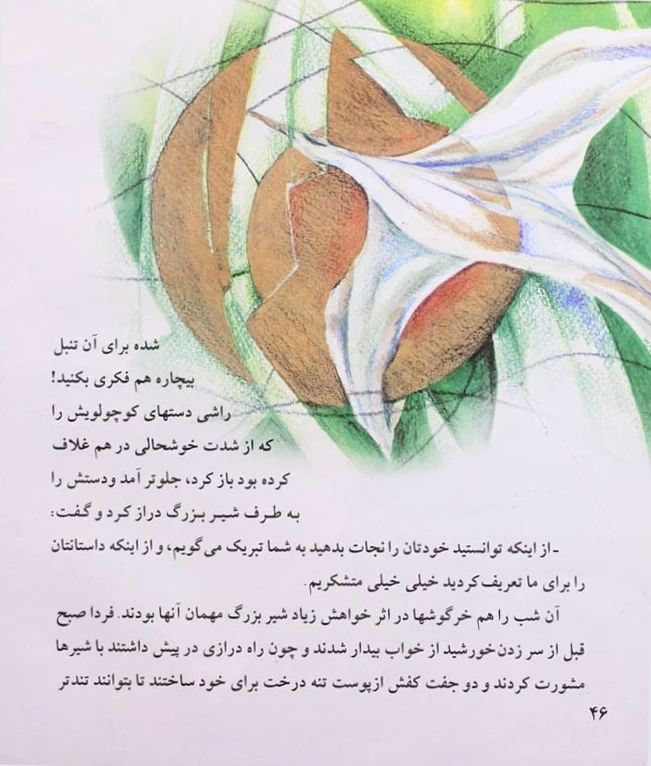 شده برای آن تنبل
بیچاره هم فکری بکنید!
راشی دستهای کوچولویش را
که از شدت خوشحالی در هم غلاف
کرده بود باز کرد، جلوتر آمد ودستش را
به طرف شیر بزرگ دراز کرد و گفت:
ـ از اینکه توانستید خودتان را نجات بدهید به شما تبریک می‌گویم، و از اینکه داستانتان
را برای ما تعریف کردید خیلی خیلی متشکریم.
آن شب را هم خرگوشها در اثر خواهش زیاد شیر بزرگ مهمان آنها بودند. فردا صبح
قبل از سر زدن خورشید از خواب بیدار شدند و چون راه درازی در پیش داشتند با شیرها
مشورت کردند و دو جفت کفش از پوست تنه درخت برای خود ساختند تا بتوانند تندتر
۴۶